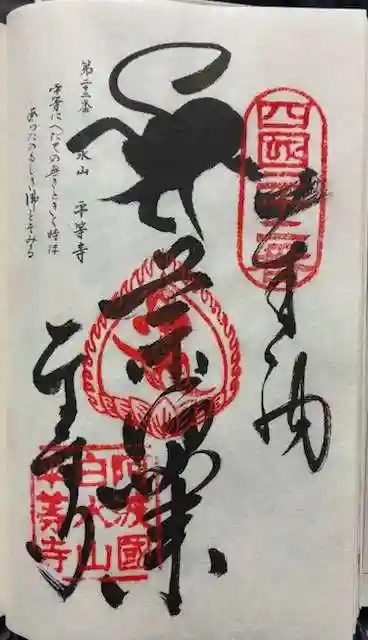 四國二十二番
奉納
薬師如来
平等寺
阿波國
白水山
平等寺
第二十二番 水山 平等寺
平等にへたての無きときく時は
あらたのもしき佛とそみる